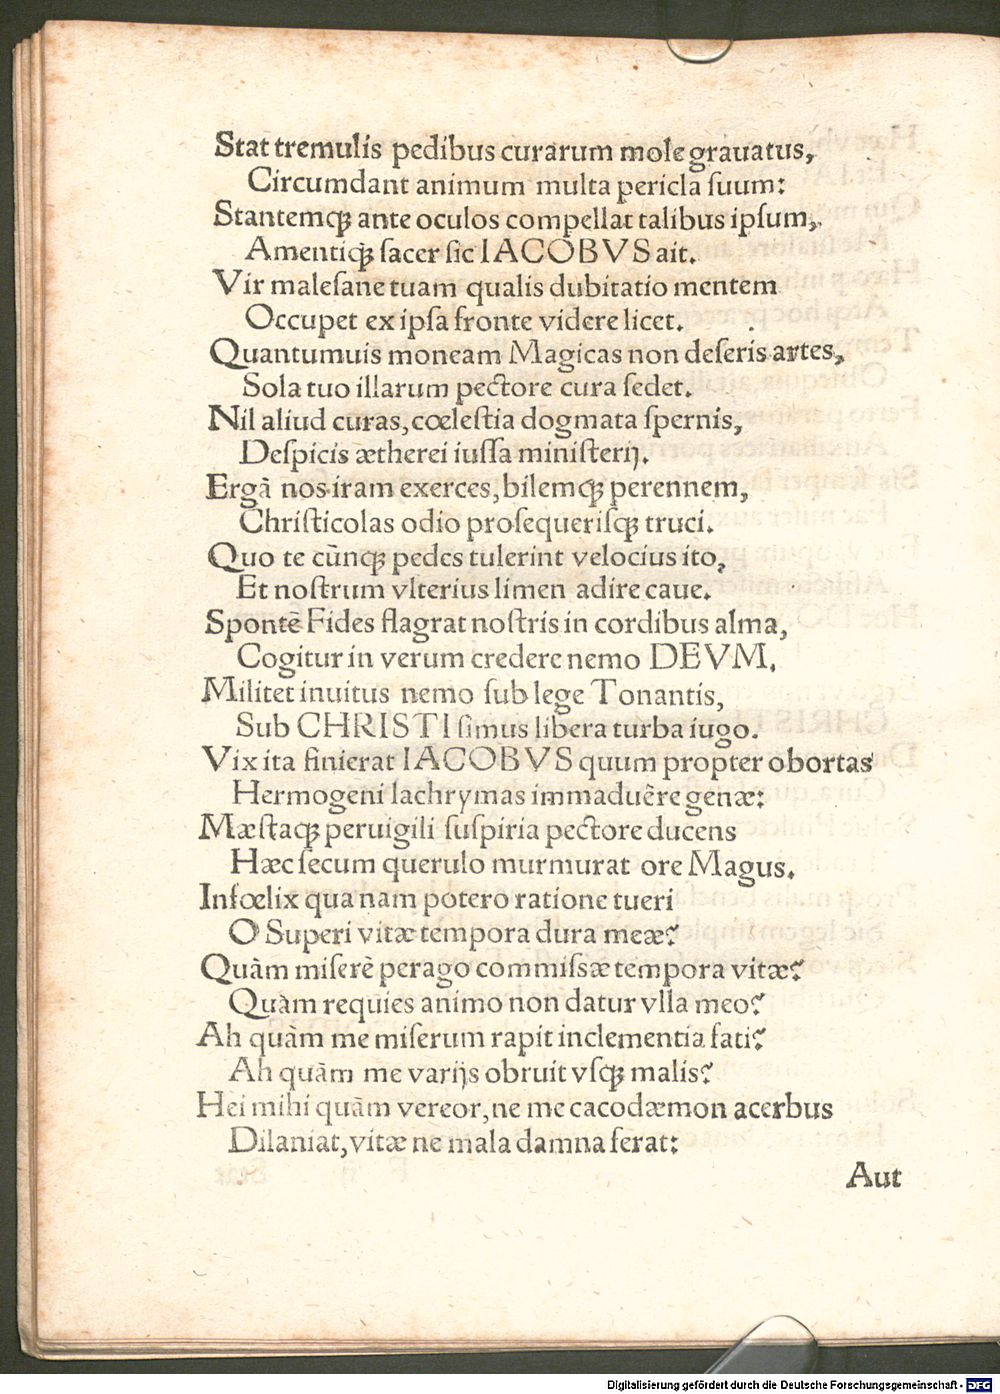 Stat tremulis pedibus curarum mole grauatus,
Circumdant animum multa pericla ſuum:
Stantemq́ꝫ ante oculos compellat talibus ipſum,
Amentiq́ꝫ ſacer ſic IACOBVS ait.
Vir maleſane tuam qualis dubitatio mentem
Occupet ex ipſa fronte videre licet.
Quantumuis moneam Magicas non deſeris artes,
Sola tuo illarum pectore cura ſedet.
Nil aliud curas, cœleſtia dogmata ſpernis,
Deſpicis ætherei iuſſa miniſterij.
Ergà nos iram exerces, bilemq́ꝫ perennem,
Chriſticolas odio proſequeriſq́ꝫ truci.
Quo te cũnq́ꝫ pedes tulerint velocius ito,
Et noſtrum vlterius limen adire caue.
Spontè Fides flagrat noſtris in cordibus alma,
Cogitur in verum credere nemo DEVM.
Militet inuitus nemo ſub lege Tonantis,
Sub CHRISTI ſimus libera turba iugo.
Vix ita finierat IACOBVS quum propter obortas
Hermogeni lachrymas immaduêre genæ:
Mæſtaq́ꝫ peruigili ſuſpiria pectore ducens
Hæc ſecum querulo murmurat ore Magus.
Infœlix qua nam potero ratione tueri
O Superi vitæ tempora dura meæ?
Quàm miſerè perago commiſsæ tempora vitæ?
Quàm requies animo non datur vlla meo?
Ah quàm me miſerum rapit inclementia fati?
Ah quàm me varijs obruit vſq́ꝫ malis?
Hei mihi quàm vereor, ne me cacodæmon acerbus
Dilaniat, vitæ ne mala damna ferat:
Aut
Digitalisierung gefördert durch die Deutsche Forschungsgemeinschaft - DFG